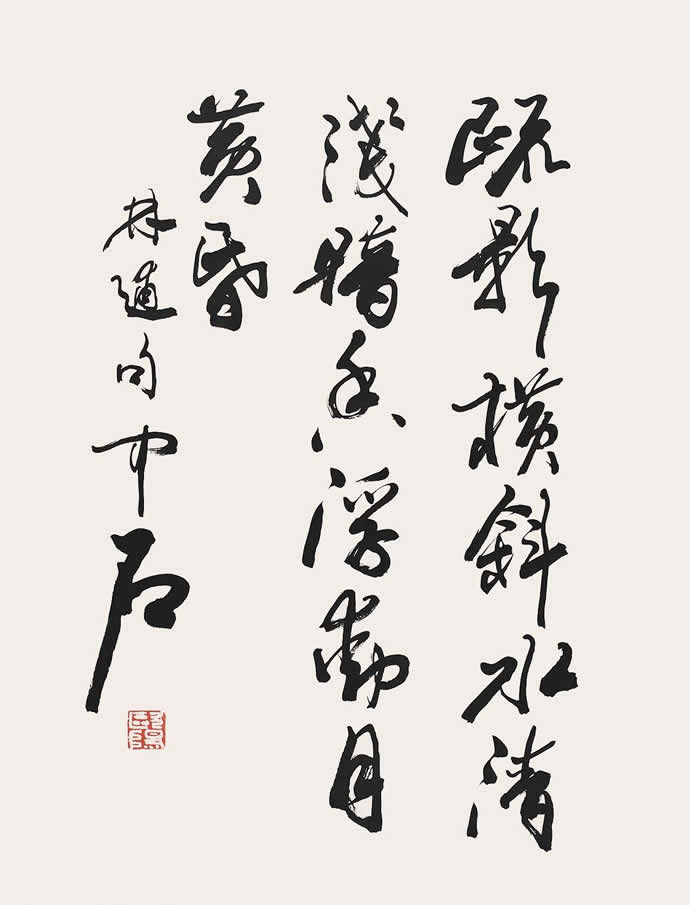 疏影橫斜水清
淺暗香浮動月
黃昏
林逋句中石